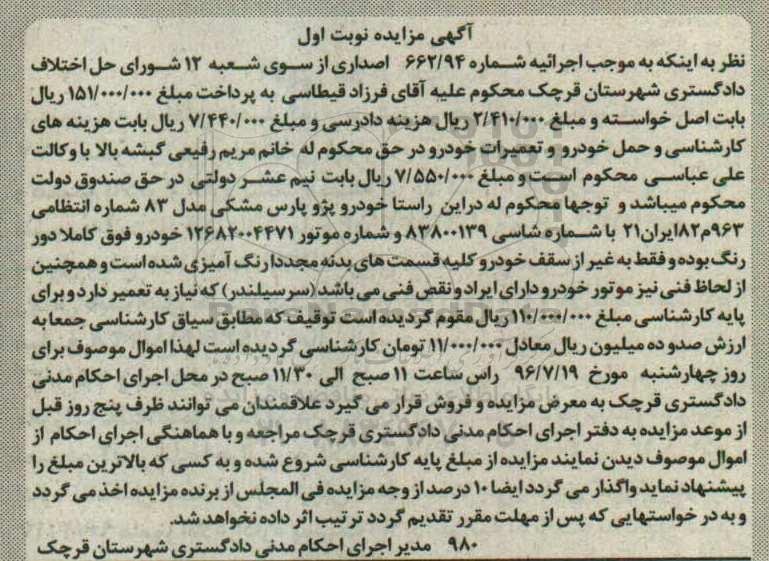 آگهی مزایده نوبت اول
نظر به اینکه به موجب اجرائیه شماره ۶۶۲/۹۴ اصداری از سوی شعبه ۱۲ شورای حل اختلاف
دادگستری شهرستان قرچک محکوم علیه آقای فرزاد قیطاسی به پرداخت مبلغ ۱۵۱/۰۰۰/۰۰۰ ریال
بابت اصل خواسته و مبلغ ۲/۴۱۰/۰۰۰ ریال هزینه دادرسی و مبلغ ۷/۴۴۰/۰۰۰ ریال بابت هزینه های
کارشناسی و حمل خودرو و تعمیرات خودرو در حق محکوم له خانم مریم رفیعی گبشه بالا با وکالت
علی عباسی محکوم است و مبلغ ۷/۵۵۰/۰۰۰ ریال بابت نیم عشر دولتی در حق صندوق دولت
محکوم میباشد و توجها محکوم له دراین راستا خودرو پژو پارس مشکی مدل ۸۳ شماره انتظامی
۹۶۳م۸۲ایران۲۱ با شماره شاسی ۸۳۸۰۰۱۳۹ و شماره موتور ۱۲۶۸۲۰۰۴۴۷۱ خودرو فوق کاملا دور
رنگ بوده و فقط به غیر از سقف خودرو کلیه قسمت های بدنه مجددا رنگ آمیزی شده است و همچنین
از لحاظ فنی نیز موتور خودرو دارای ایراد و نقص فنی می باشد (سر سیلندر) که نیاز به تعمیر دارد و برای
پایه کارشناسی مبلغ ۱۱۰/۰۰۰/۰۰۰ ریال مقوم گردیده است توقیف که مطابق سیاق کارشناسی جمعا به
ارزش صدو ده میلیون ریال معادل ۱۱/۰۰۰/۰۰۰ تومان کارشناسی گردیده است لهذا اموال موصوف برای
روز چهارشنبه مورخ ۹۶/۷/۱۹ راس ساعت ۱۱ صبح الی ۱۱/۳۰ صبح در محل اجرای احکام مدنی
دادگستری قرچک به معرض مزایده و فروش قرار می گیرد علاقمندان می توانند ظرف پنج روز قبل
از موعد مزایده به دفتر اجرای احکام مدنی دادگستری قرچک مراجعه و با هماهنگی اجرای احکام از
اموال موصوف دیدن نمایند مزایده از مبلغ پایه کارشناسی شروع شده و به کسی که بالاترین مبلغ را
پیشنهاد نماید واگذار می گردد ایضا ۱۰ درصد از وجه مزایده فی المجلس از برنده مزایده اخذ می گردد
و به در خواستهایی که پس از مهلت مقرر تقدیم گردد ترتیب اثر داده نخواهد شد.
۹۸۰ مدیر اجرای احکام مدنی دادگستری شهرستان قرچک